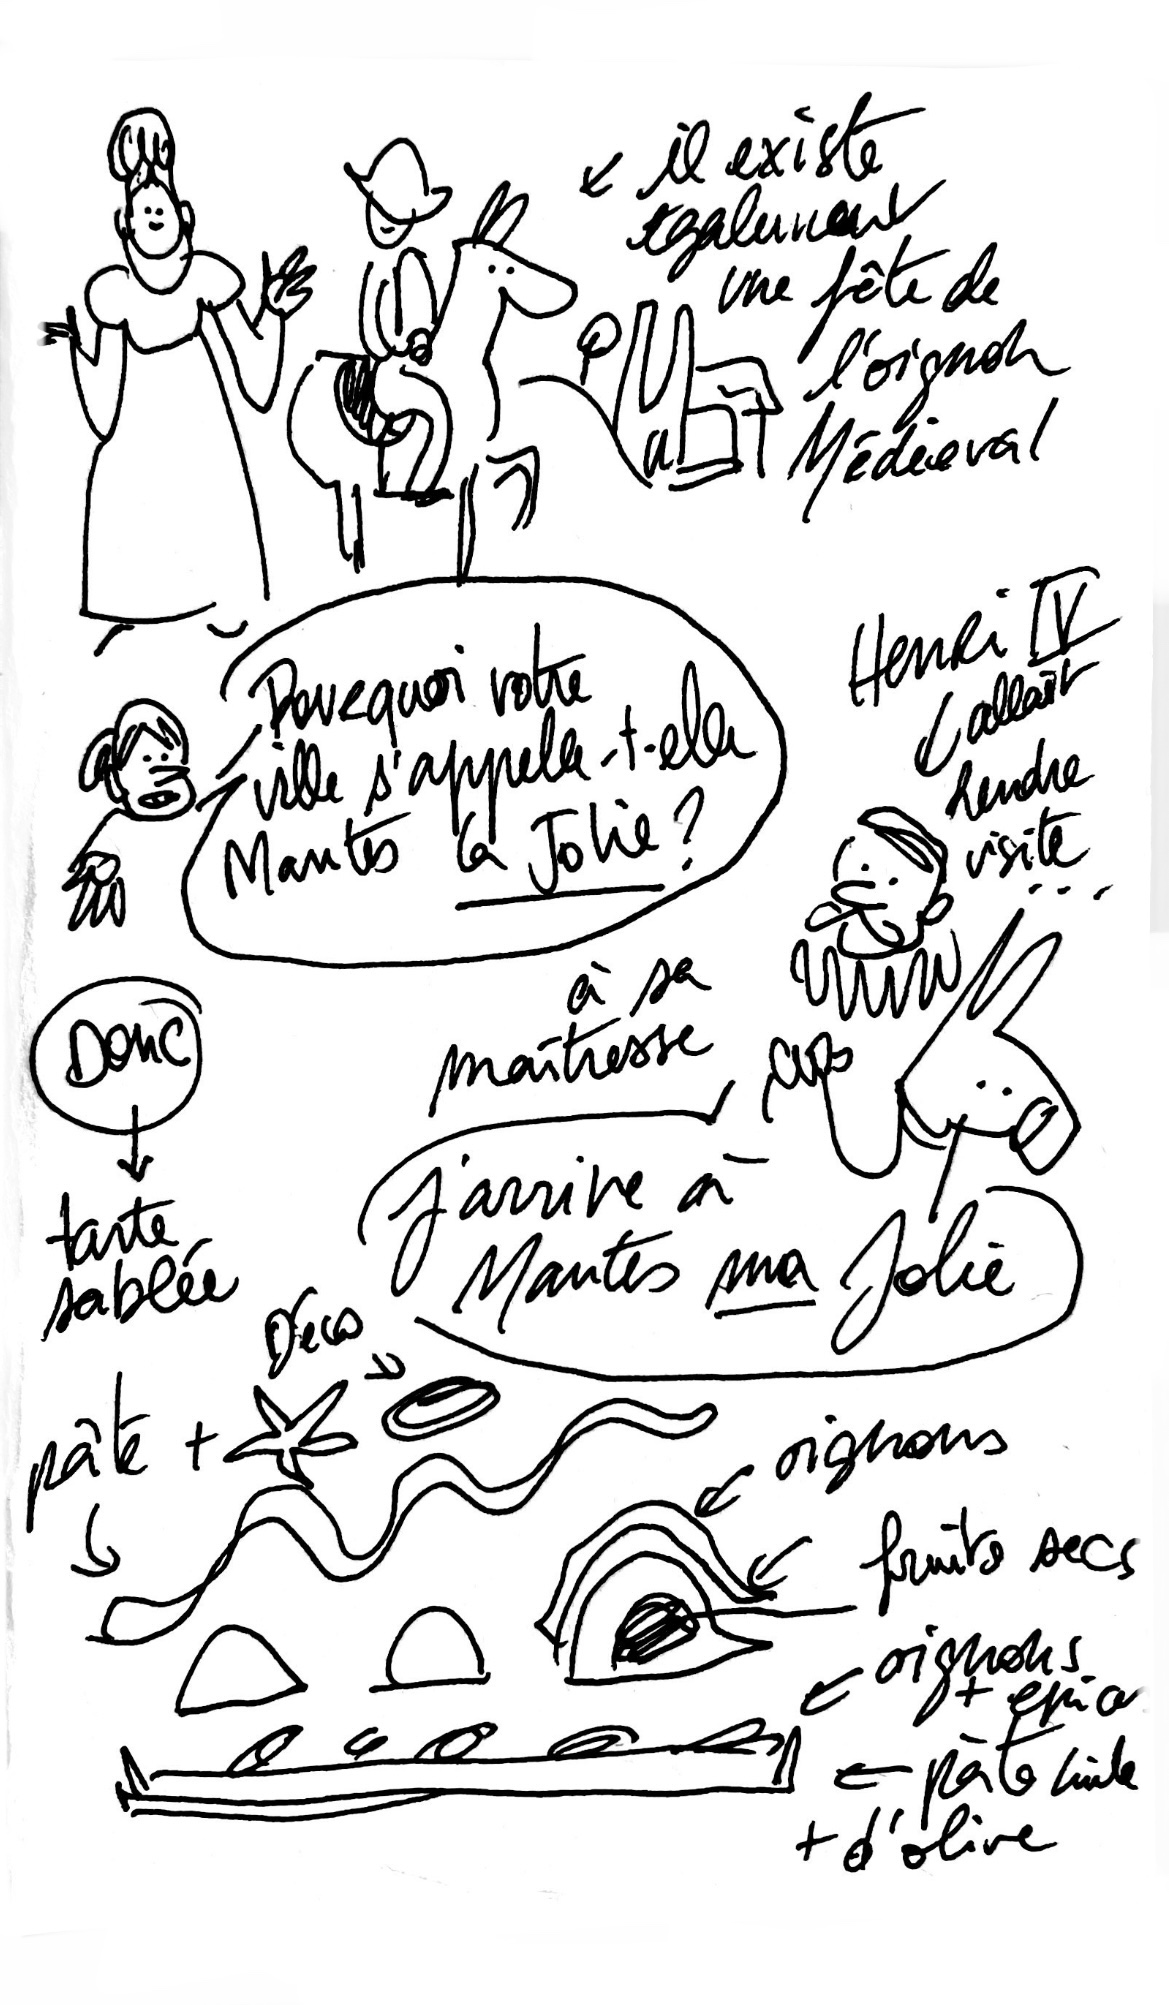 il existe
également
une fête de
l'oignon
Médiéval
Pourquoi votre
ville s'appelle-t-elle
Mantes la Jolie ?
Henri IV
allait
rendre
visite
...
à sa
maîtresse
J'arrive à
Mantes ma Jolie
Donc
tarte
sablée
Déco
pâte +
oignons
fruits secs
oignons
+ épice
pâte huile
+ d'olive